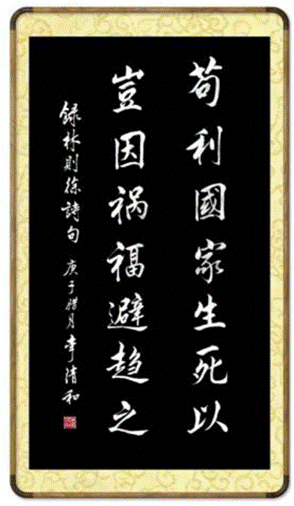 苟利國家生死以
豈因祸福避趋之
録林則徐詩句 庚子腊月 清和